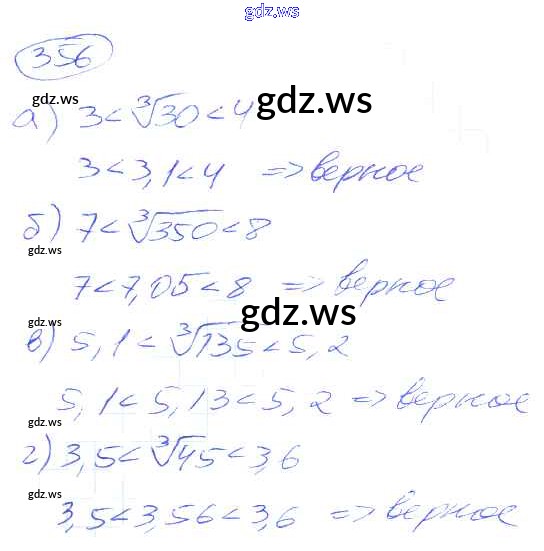 gdz.ws
356
gdz.ws
gdz.ws
а) 3 < ∛30 < 4
3 < 3,1 < 4 => верное
б) 7 < ∛350 < 8
gdz.ws
7 < 7,05 < 8 => верное
gdz.ws
gdz.ws
в) 5,1 < ∛135 < 5,2
5,1 < 5,13 < 5,2 => верное
gdz.ws
г) 3,5 < ∛45 < 3,6
gdz.ws
3,5 < 3,56 < 3,6 => верное